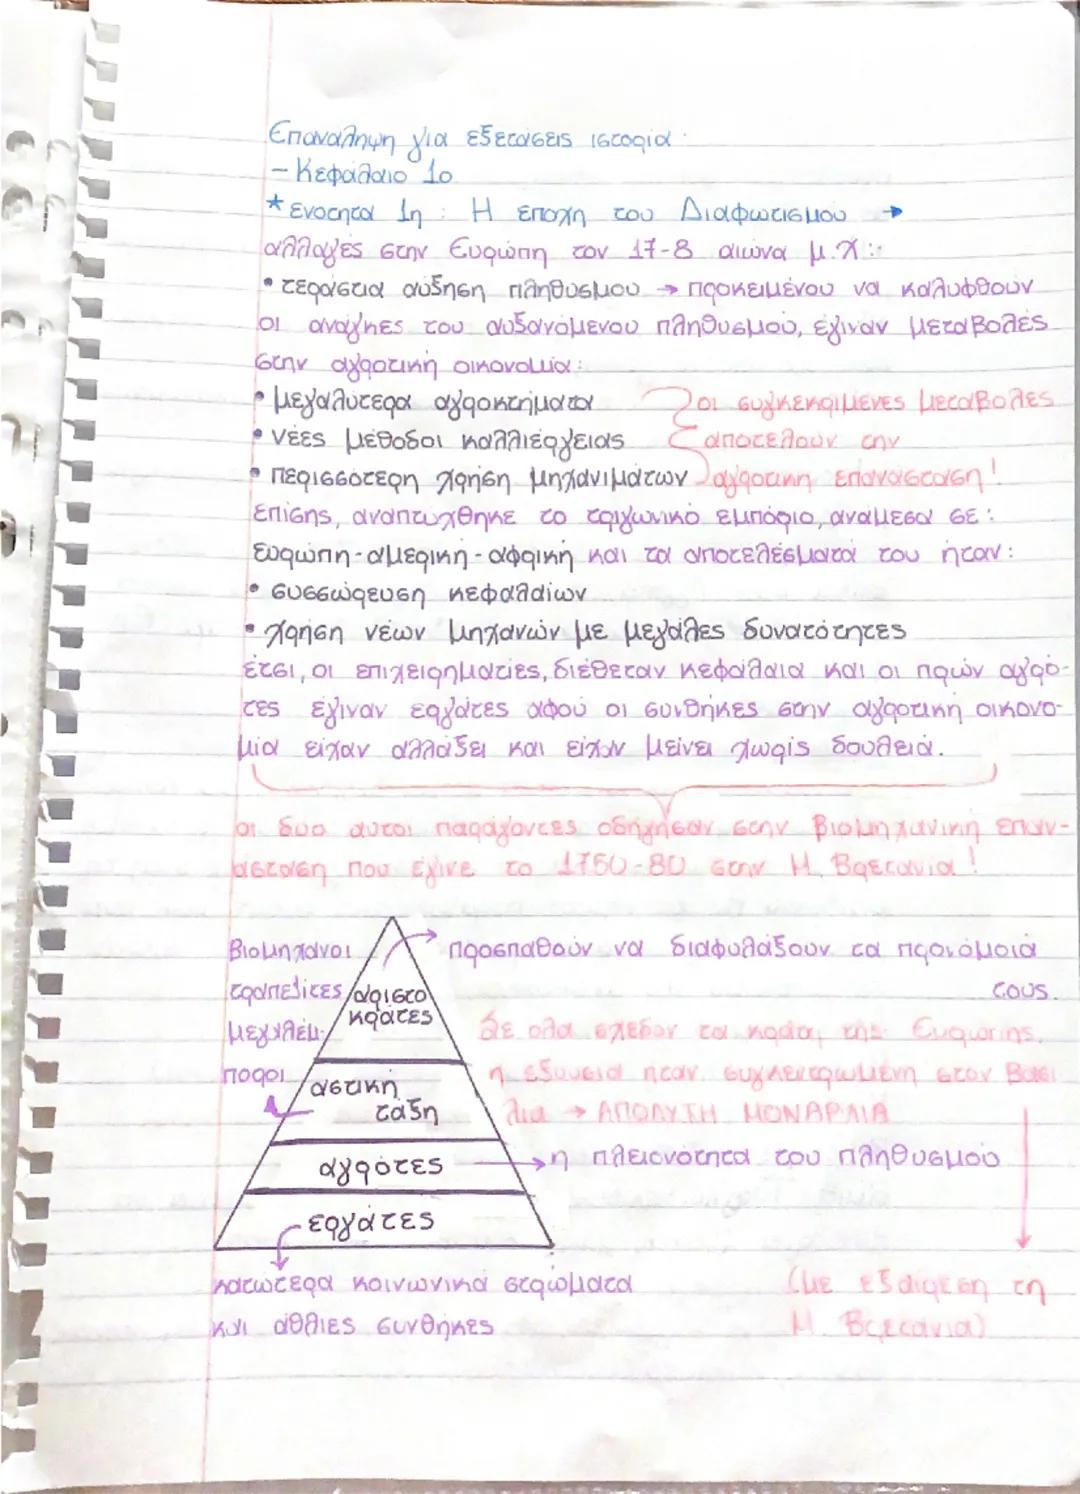 Επανάληψη για εξετάσεις ιστορία:
- Κεφάλαιο 1ο
* ενότητα 1η : Η εποχή του Διαφωτισμού →
αλλαγές στην Ευρώπη τον 17-8 αιώνα μ.Χ.:
• τεράστια αύξηση πληθυσμού → προκειμένου να καλυφθούν
οι ανάγκες του αυξανόμενου πληθυσμού, έγιναν μεταβολές
στην αγροτική οικονομία:
• μεγαλύτερα αγροκτήματα
• νέες μέθοδοι καλλιέργειας
• περισσότερη χρήση μηχανιμάτων
οι συγκεκριμένες μεταβολές
αποτελούν την
αγροτικη επανάσταση!
Επίσης, αναπτυχθηκε το τριγωνικό εμπόριο, ανάμεσα σε:
Ευρώπη - αμερική - αφρική και τα αποτελέσματά του ήταν:
• συσσώρευση κεφαλαίων
• χρήση νέων μηχανών με μεγάλες δυνατότητες
έτσι, οι επιχειρηματίες, διέθεταν κεφάλαια και οι πρών αγρό-
τες έγιναν εργάτες αφού οι συνθήκες στην αγροτική οικονο-
μία είχαν αλλάξει και είχαν μείνει χωρίς δουλειά.
οι δυο αυτοί παράγοντες οδήγησαν στην Βιομηχανική επαν-
άσταση που έγινε το 1750-80 στην Μ. Βρετανία!
Βιομηχανοι
τραπεζίτες
μεγαλέμ-
ποροι
αριστο
κράτες
αστική
τάξη
αγρότες
εργάτες
προσπαθούν να διαφυλάξουν τα προνόμοιά
τους.
Σε ολα σχεδόν τα κράτη της Ευρώπης,
η εξουσία ήταν συγκεντρωμένη στον Βασι
λια → ΑΠΟΛΥΤΗ ΜΟΝΑΡΧΙΑ
η πλειονότητα του πληθυσμού
κατώτερα κοινωνικά στρώματα
και άθλιες συνθήκες
(με εξαίρεση τη
Μ. Βρετανία)